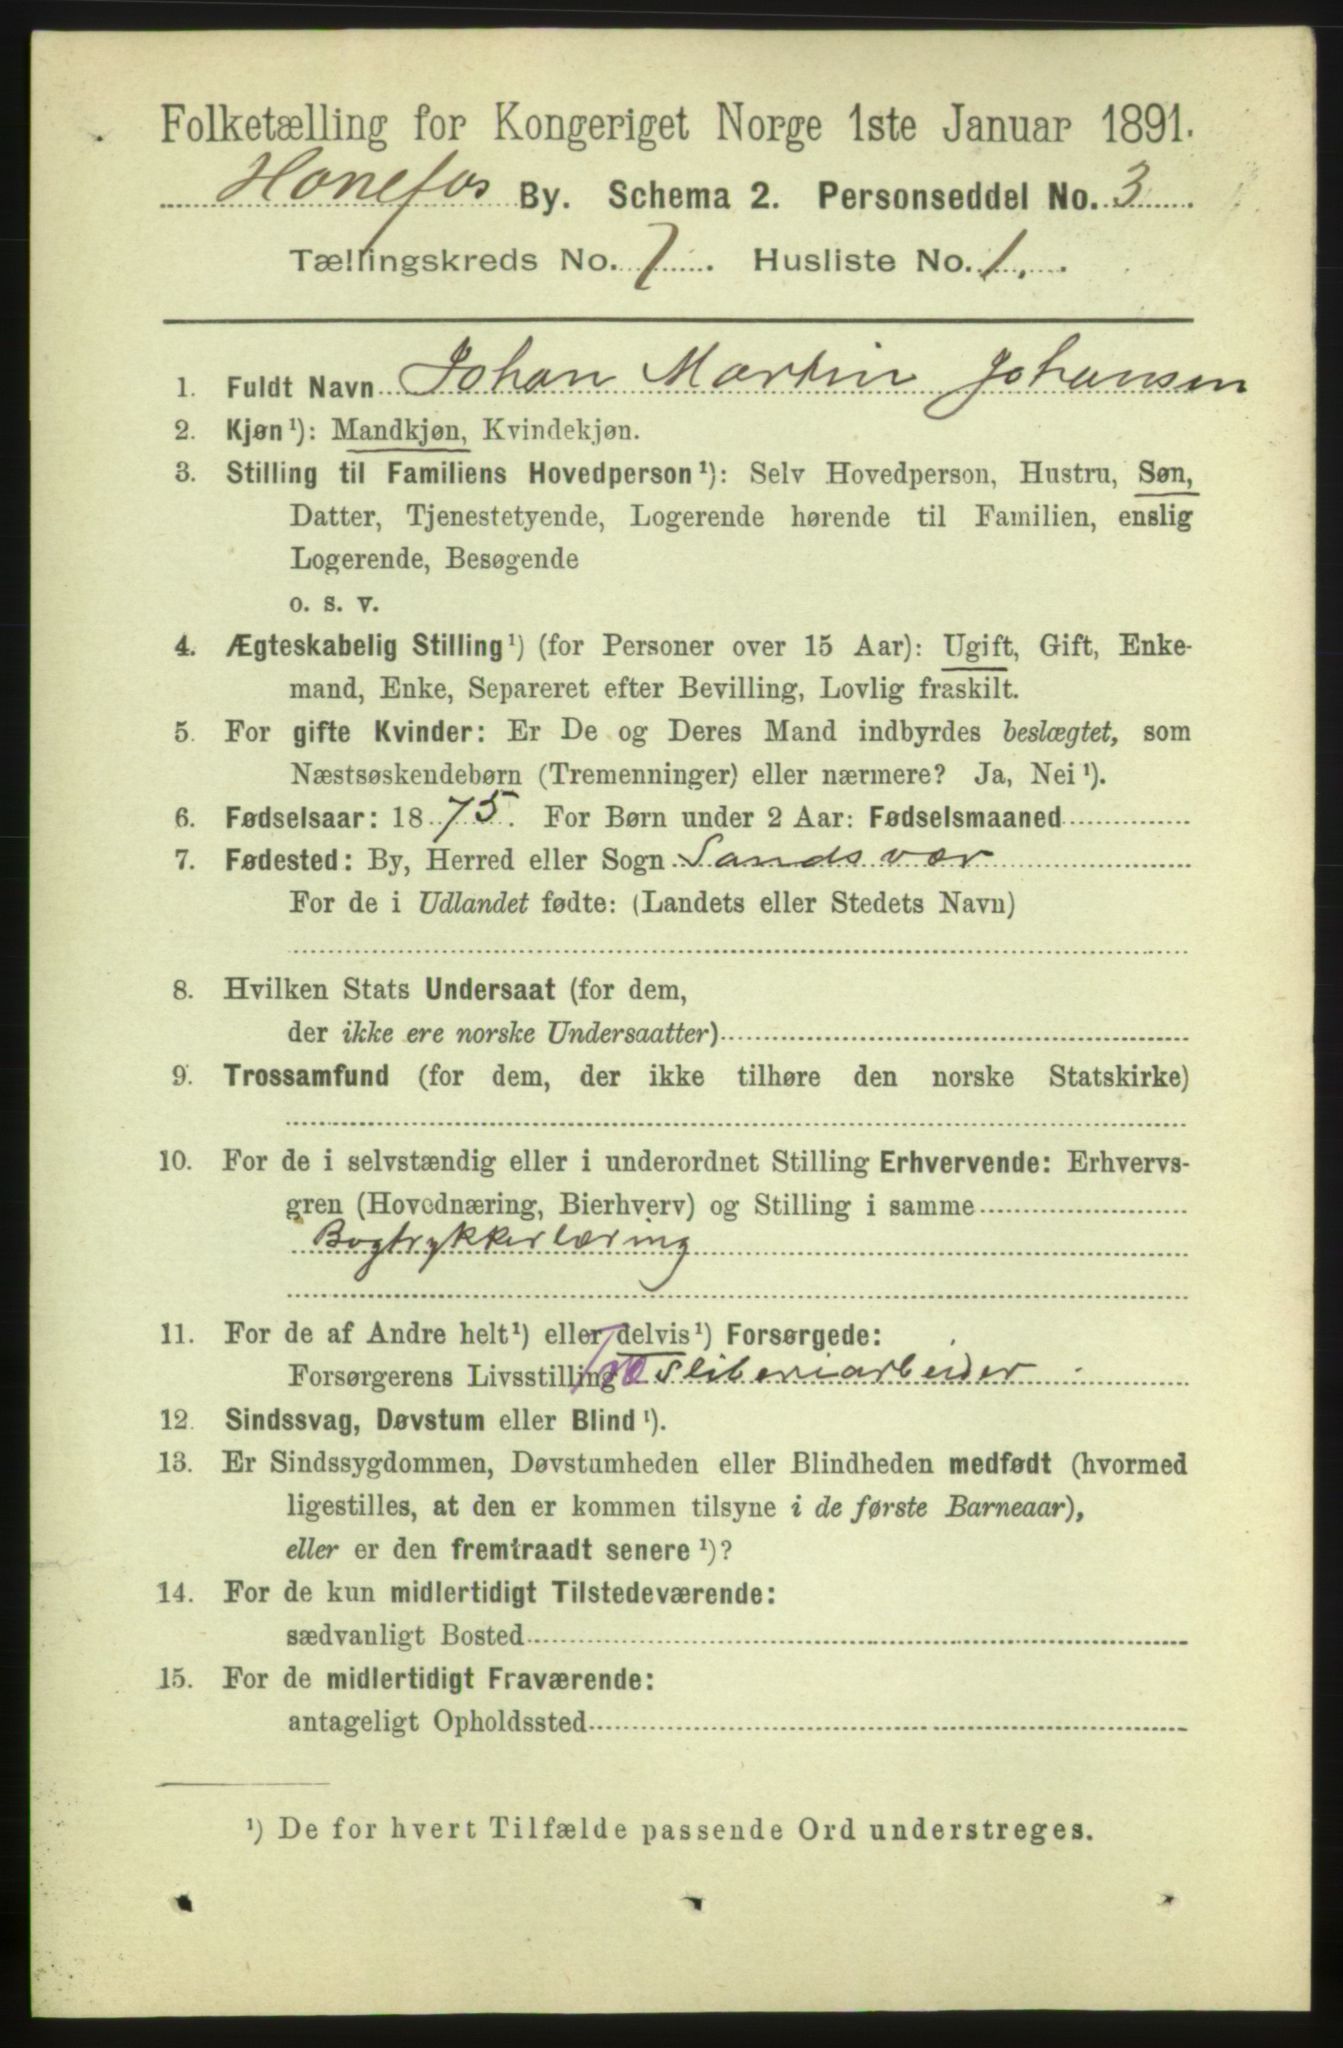 Folketælling for Kongeriget Norge 1ste Januar 1891.
Honefos By. Schema 2. Personseddel No. 3
Tællingskreds No. 7. Husliste No. 1.
1. Fuldt Navn Johan Martin Johansen
2. Kjøn¹): Mandkjøn, Kvindekjøn.
3. Stilling til Familiens Hovedperson¹): Selv Hovedperson, Hustru, Søn,
Datter, Tjenestetyende, Logerende hørende til Familien, enslig
Logerende, Besøgende
o. s. v.
4. Ægteskabelig Stilling¹) (for Personer over 15 Aar): Ugift, Gift, Enke-
mand, Enke, Separeret efter Bevilling, Lovlig fraskilt.
5. For gifte Kvinder: Er De og Deres Mand indbyrdes beslægtet, som
Næstsøskendebørn (Tremenninger) eller nærmere? Ja, Nei¹).
6. Fødselsaar: 1875. For Børn under 2 Aar: Fødselsmaaned
7. Fødested: By, Herred eller Sogn Sandsvær
For de i Udlandet fødte: (Landets eller Stedets Navn)
8. Hvilken Stats Undersaat (for dem,
der ikke ere norske Undersaatter)
9. Trossamfund (for dem, der ikke tilhøre den norske Statskirke)
10. For de i selvstændig eller i underordnet Stilling Erhvervende: Erhvervs-
gren (Hovednæring, Bierhverv) og Stilling i samme
Bogtrykkerlæring
11. For de af Andre helt¹) eller delvis¹) Forsørgede:
Forsørgerens Livsstilling Sliberiarbeider
12. Sindssvag, Døvstum eller Blind¹).
13. Er Sindssygdommen, Døvstumheden eller Blindheden medfødt (hvormed
ligestilles, at den er kommen tilsyne i de første Barneaar),
eller er den fremtraadt senere¹)?
14. For de kun midlertidigt Tilstedeværende:
sædvanligt Bosted
15. For de midlertidigt Fraværende:
antageligt Opholdssted
¹) De for hvert Tilfælde passende Ord understreges.